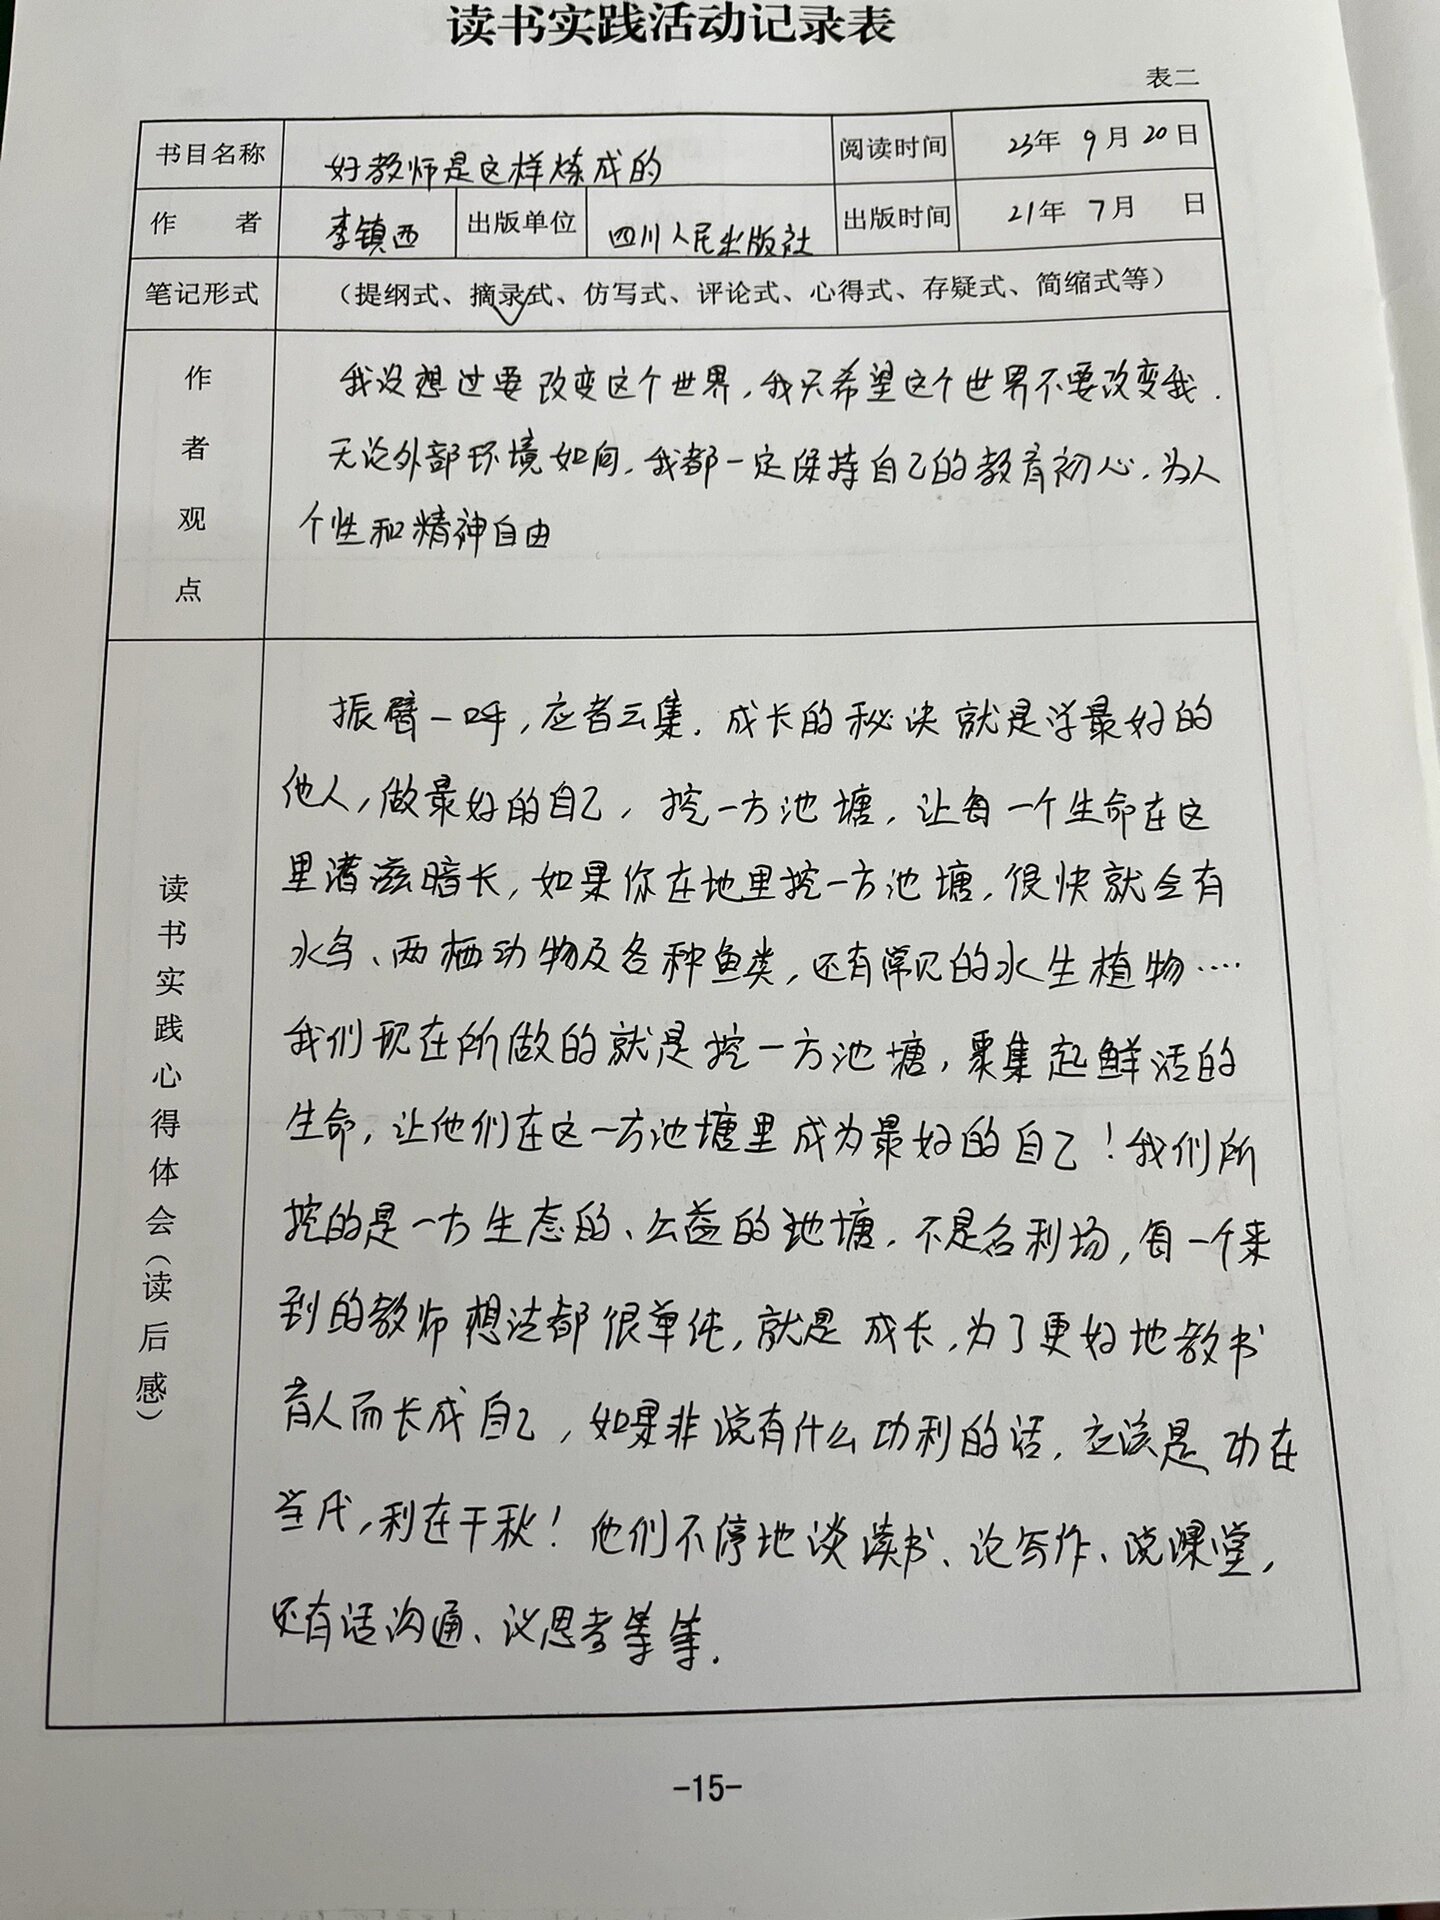 读书实践活动记录表
表二
书目名称 好教师是这样炼成的 阅读时间 23年 9月 20日
作 者 李镇西 出版单位 四川人民出版社 出版时间 21年 7月 日
笔记形式 （提纲式、摘录式、仿写式、评论式、心得式、存疑式、简缩式等）
作者观点
我没想过要改变这个世界，我只希望这个世界不要改变我．
无论外部环境如何，我都一定保持自己的教育初心，为人
个性和精神自由
读书实践心得体会（读后感）
振臂一呼，应者云集．成长的秘诀就是学最好的
他人，做最好的自己，挖一方池塘，让每一个生命在这
里潜滋暗长，如果你在地里挖一方池塘，很快就会有
水鸟、两栖动物及各种鱼类，还有常见的水生植物····
我们现在所做的就是挖一方池塘，聚集起鲜活的
生命，让他们在这一方池塘里成为最好的自己！我们所
挖的是一方生态的、公益的池塘，不是名利场，每一个来
到的教师想法都很单纯，就是成长，为了更好地教书
育人而长成自己，如果非说有什么功利的话，应该是功在
当代，利在千秋！他们不停地谈读书、论写作、说课堂，
还有话沟通、议思考等等．
-15-